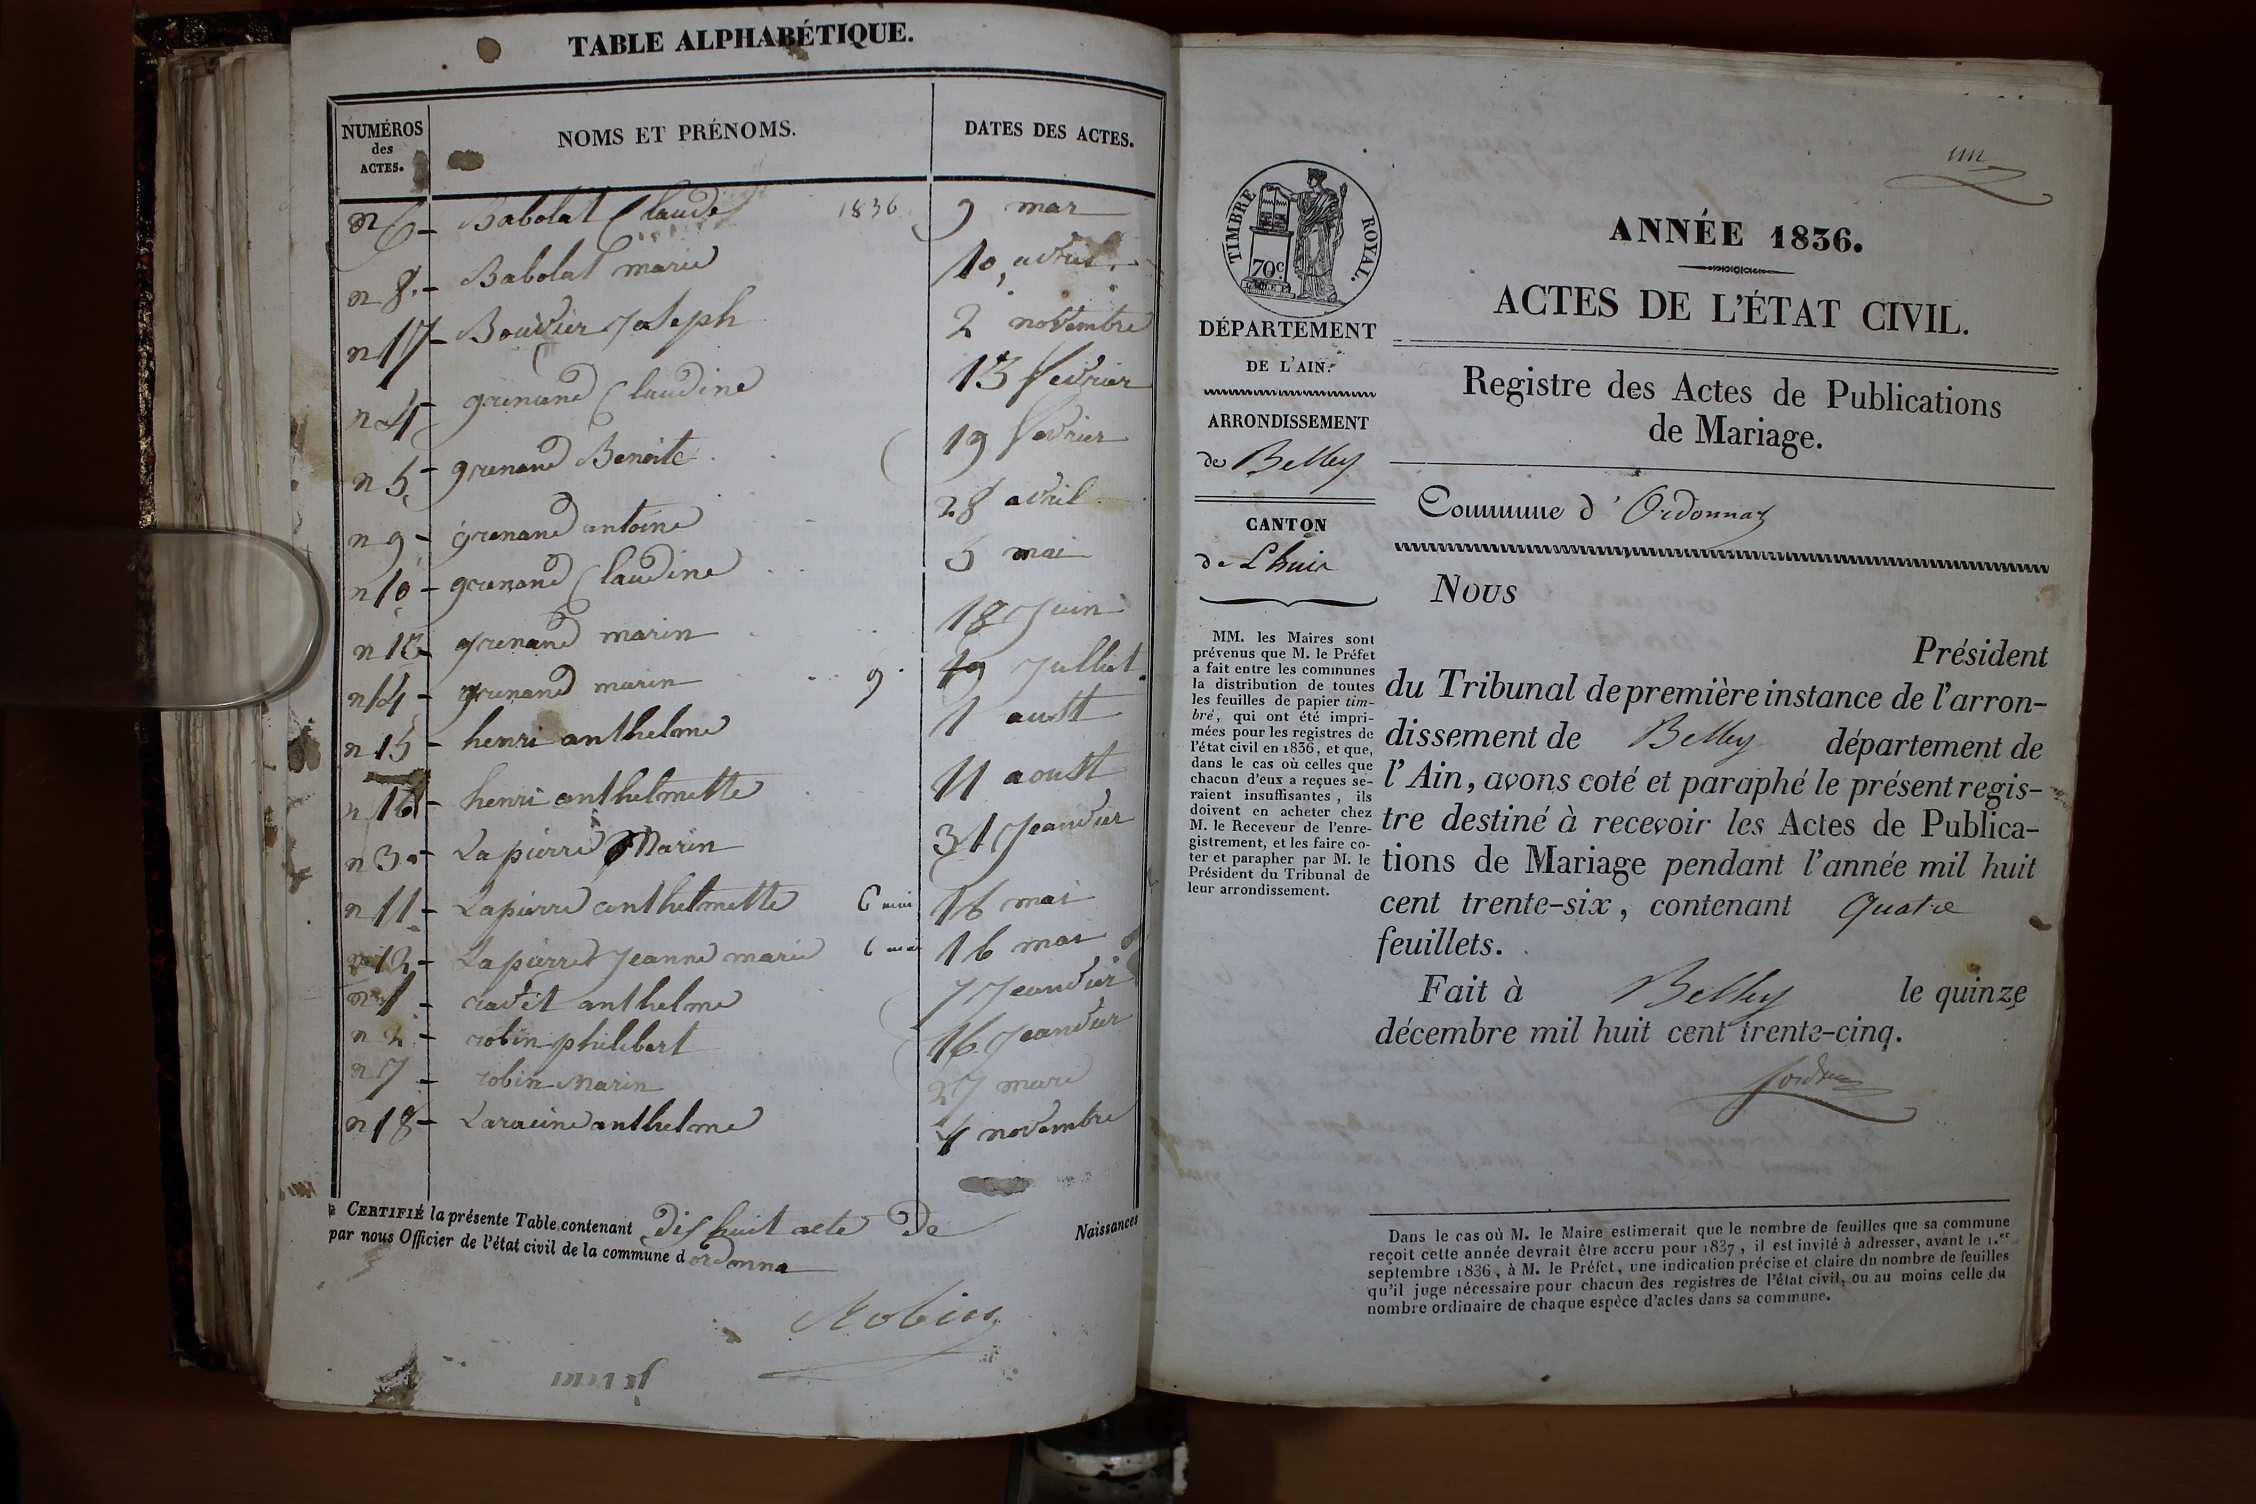 TABLE ALPHABÉTIQUE.
NUMÉROS
des
ACTES.
NOMS ET PRÉNOMS.
DATES DES ACTES.
n 6 - Babolat Claude 1836 9 mar
n 8. - Babolat marie 10 avril
n 17 - Bouvier Joseph 2 novembre
n 4 - grenand Claudine 13 fevrier
n 5 - grenand Benoite 19 fevrier
n 9 - grenand antoine 28 avril
n 10 - grenand Claudine 5 mai
n 13 - grenand marin 18 Juin
n 14 - grenand marin 9 19 Jullet
n 15 - henri anthelme 1 aust
n 16 - henri anthelmette 11 aoust
n 3 - Lapierre Marin 31 Jeanvier
n 11 - Lapierre anthelmette 6 mai 16 mai
n 12 - Lapierre Jeanne marie 6 mai 16 mai
n 1 - ravet anthelme 7 Jeanvier
n 2 - robin philibert 16 Jeanvier
n 7 - robin Marin 27 mars
n 18 - Laracine anthelme 4 novembre
CERTIFIÉ la présente Table contenant dishuit acte de Naissances
par nous Officier de l'état civil de la commune d ordonna
Robin
un
TIMBRE ROYAL.
70c.
ANNÉE 1836.
ACTES DE L'ÉTAT CIVIL.
DÉPARTEMENT
DE L'AIN.
ARRONDISSEMENT
de Belley
CANTON
de Lhuis
Registre des Actes de Publications
de Mariage.
Commune d'Ordonnaz
MM. les Maires sont
prévenus que M. le Préfet
a fait entre les communes
la distribution de toutes
les feuilles de papier tim-
bré, qui ont été impri-
mées pour les registres de
l'état civil en 1836, et que,
dans le cas où celles que
chacun d'eux a reçues se-
raient insuffisantes, ils
doivent en acheter chez
M. le Receveur de l'enre-
gistrement, et les faire co-
ter et parapher par M. le
Président du Tribunal de
leur arrondissement.
Nous
Président
du Tribunal de première instance de l'arron-
dissement de Belley département de
l'Ain, avons coté et paraphé le présent regis-
tre destiné à recevoir les Actes de Publica-
tions de Mariage pendant l'année mil huit
cent trente-six, contenant quatre
feuillets.
Fait à Belley le quinze
décembre mil huit cent trente-cinq.
Dans le cas où M. le Maire estimerait que le nombre de feuilles que sa commune
reçoit cette année devrait être accru pour 1837, il est invité à adresser, avant le 1.er
septembre 1836, à M. le Préfet, une indication précise et claire du nombre de feuilles
qu'il juge nécessaire pour chacun des registres de l'état civil, ou au moins celle du
nombre ordinaire de chaque espèce d'actes dans sa commune.